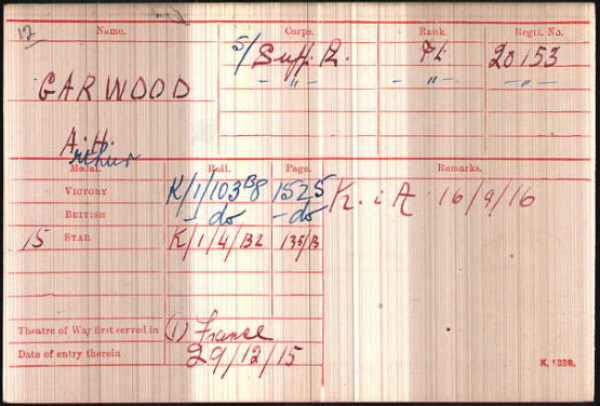 12
Name. Corps. Rank. Regtl. No.
5/Suff. R. Pte 20153
- " - - " - - " -
GARWOOD
A. H.
Arthur
Medal. Roll. Page. Remarks.
VICTORY K/1/103B8 1525 K. i A. 16/9/16
BRITISH - do - do
15 STAR K/1/4/B2 135/B
Theatre of War first served in (1) France
Date of entry therein 29/12/15
K. 1380.